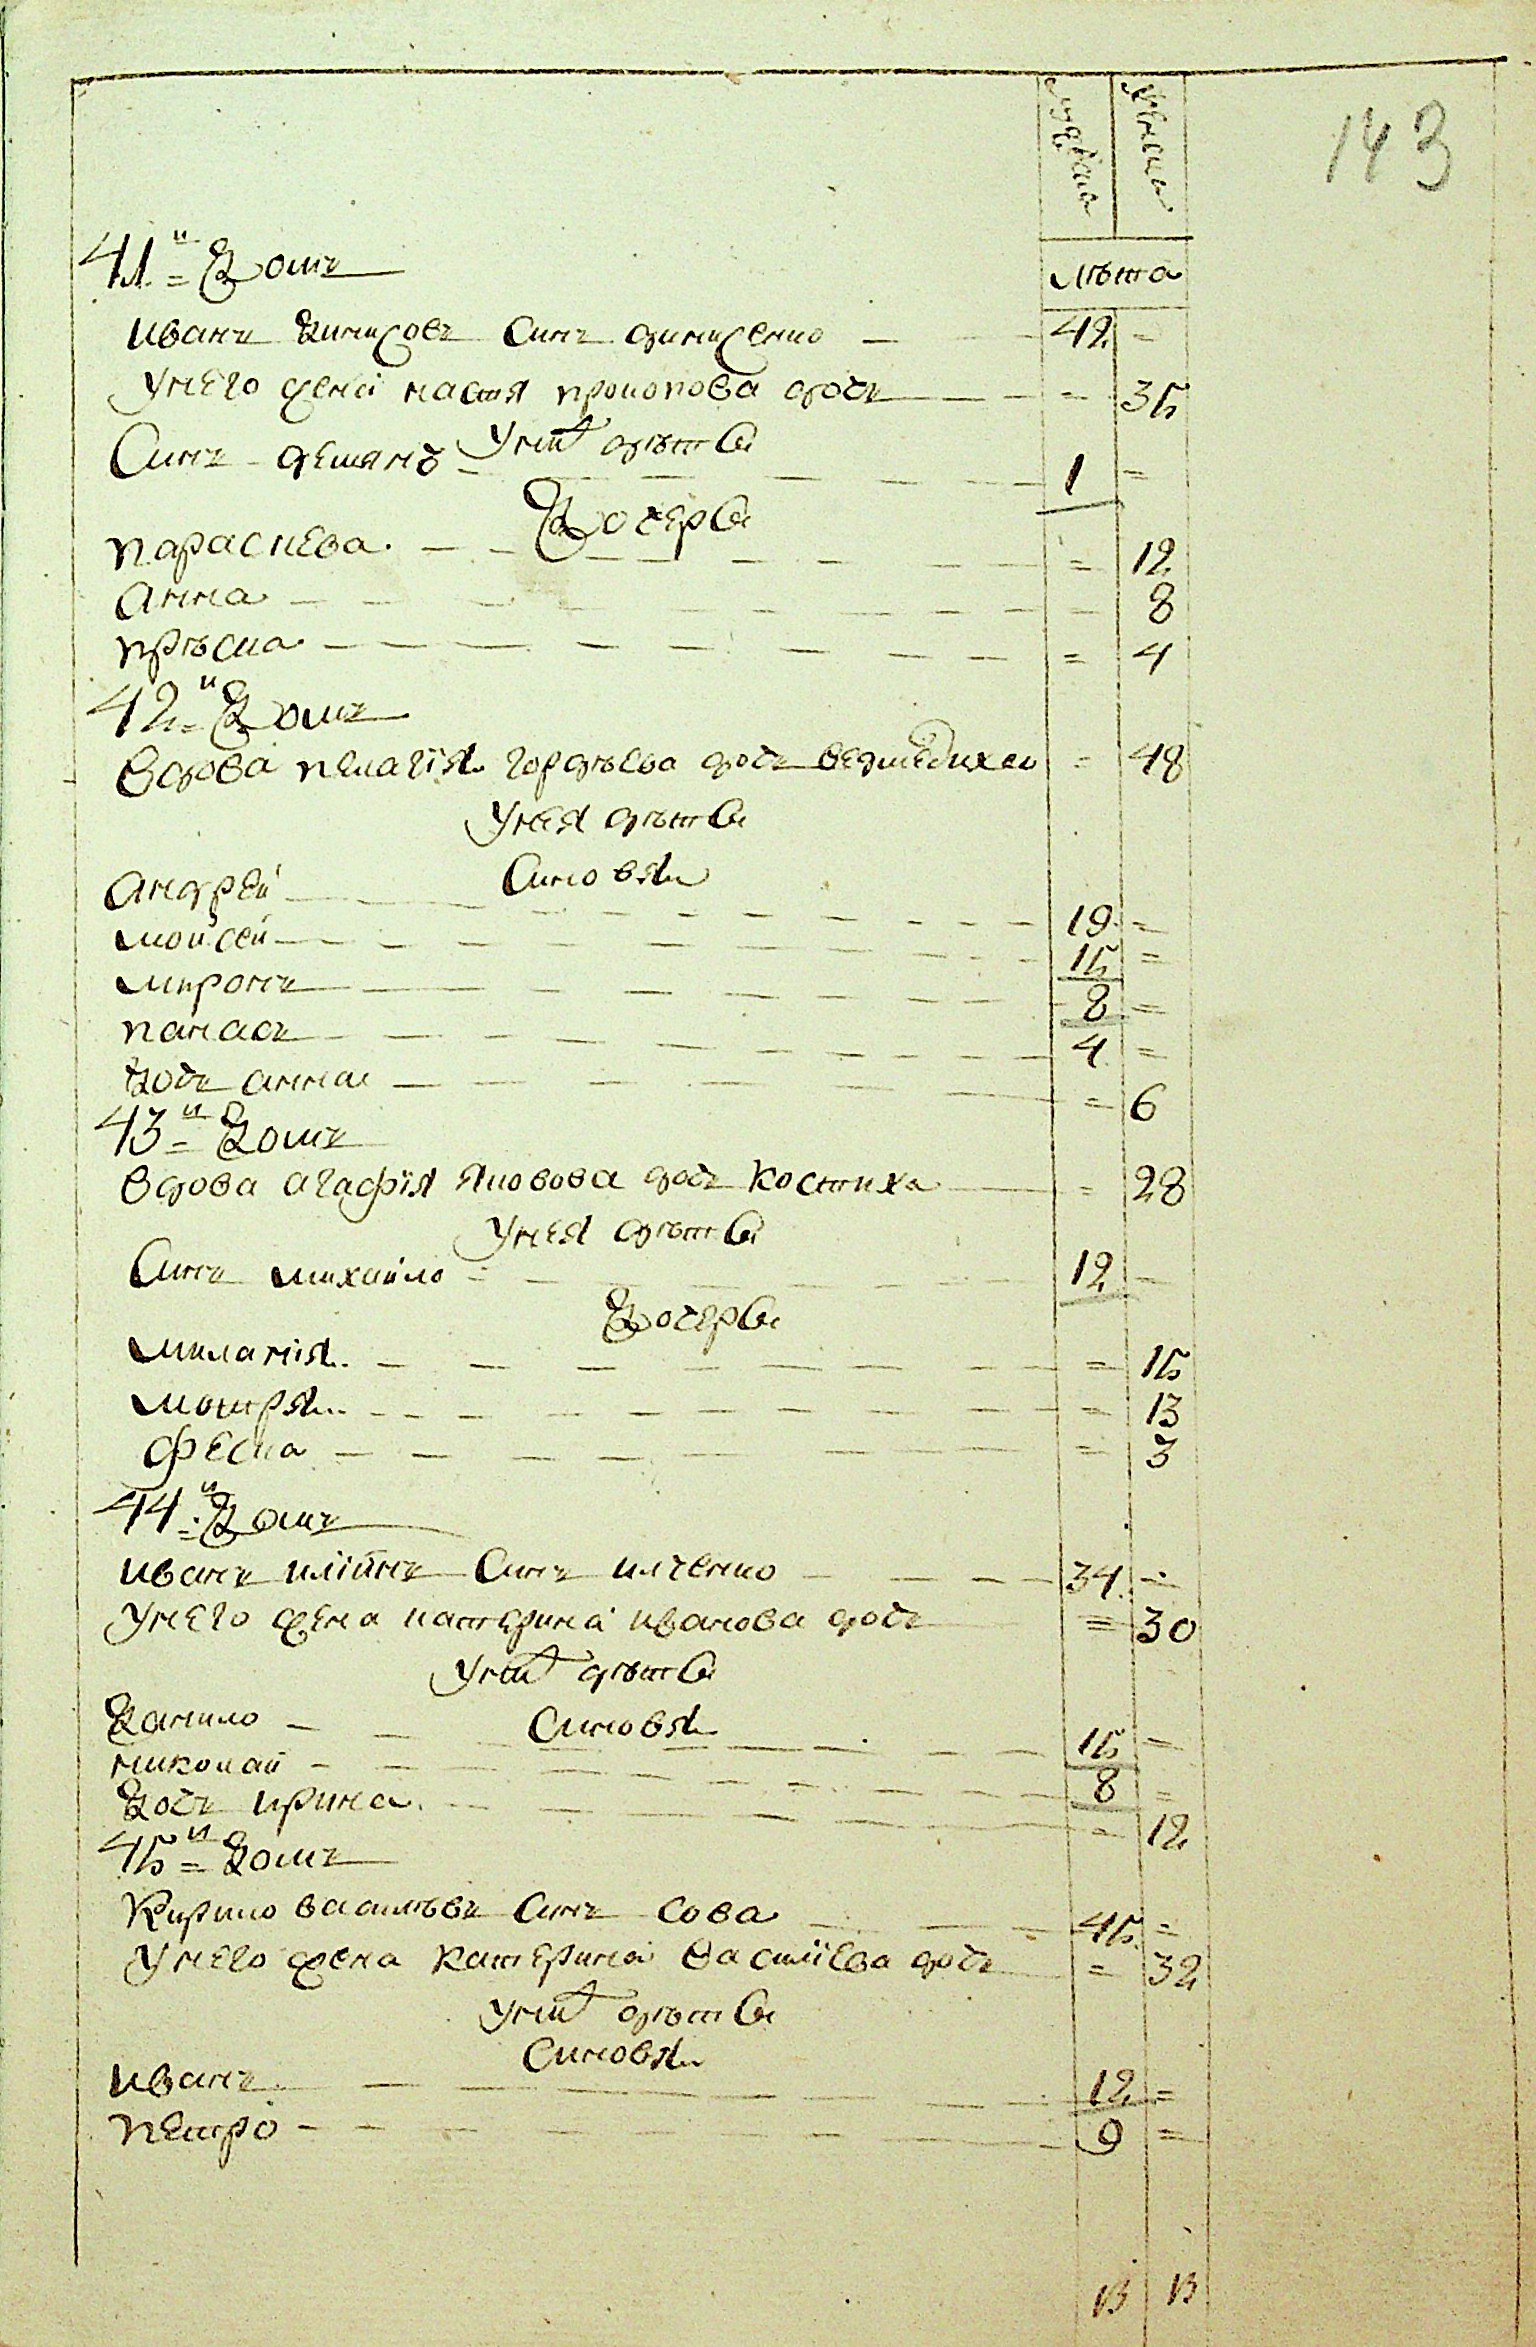 143
мужеска женска
лѣта
41й домъ
иванъ денисовъ синъ дениСенко 42 =
Унего жена настя прокопова дочь = 35
Унихъ дѣти
Синъ демянъ 1 =
дочери
параскева = 12
анна = 8
прѣска = 4
42й домъ
вдова пелагія гордѣева дочь ведмедиха = 48
Унея дѣти
Синовя
андрей 19 =
мойсей 15 =
миронъ 8 =
панасъ 4 =
дочь анна = 6
43й домъ
вдова агафія яковова дочь костиха = 28
Унея дѣти
Синъ михайло 12 =
дочери
миланія = 15
мотря = 13
феска = 3
44й домъ
иванъ илійнъ Синъ илченко 34 =
Унего жена катерина иванова дочь = 30
Унихъ дѣти
Синовя
данило 15 =
николай 8 =
дочь ирина = 12
45й домъ
Кирило василѣвъ Синъ Сова 45 =
Унего жена катерина василіева дочь = 32
Унихъ дѣти
Синовя
иванъ 12 =
петро 9 =
13 13